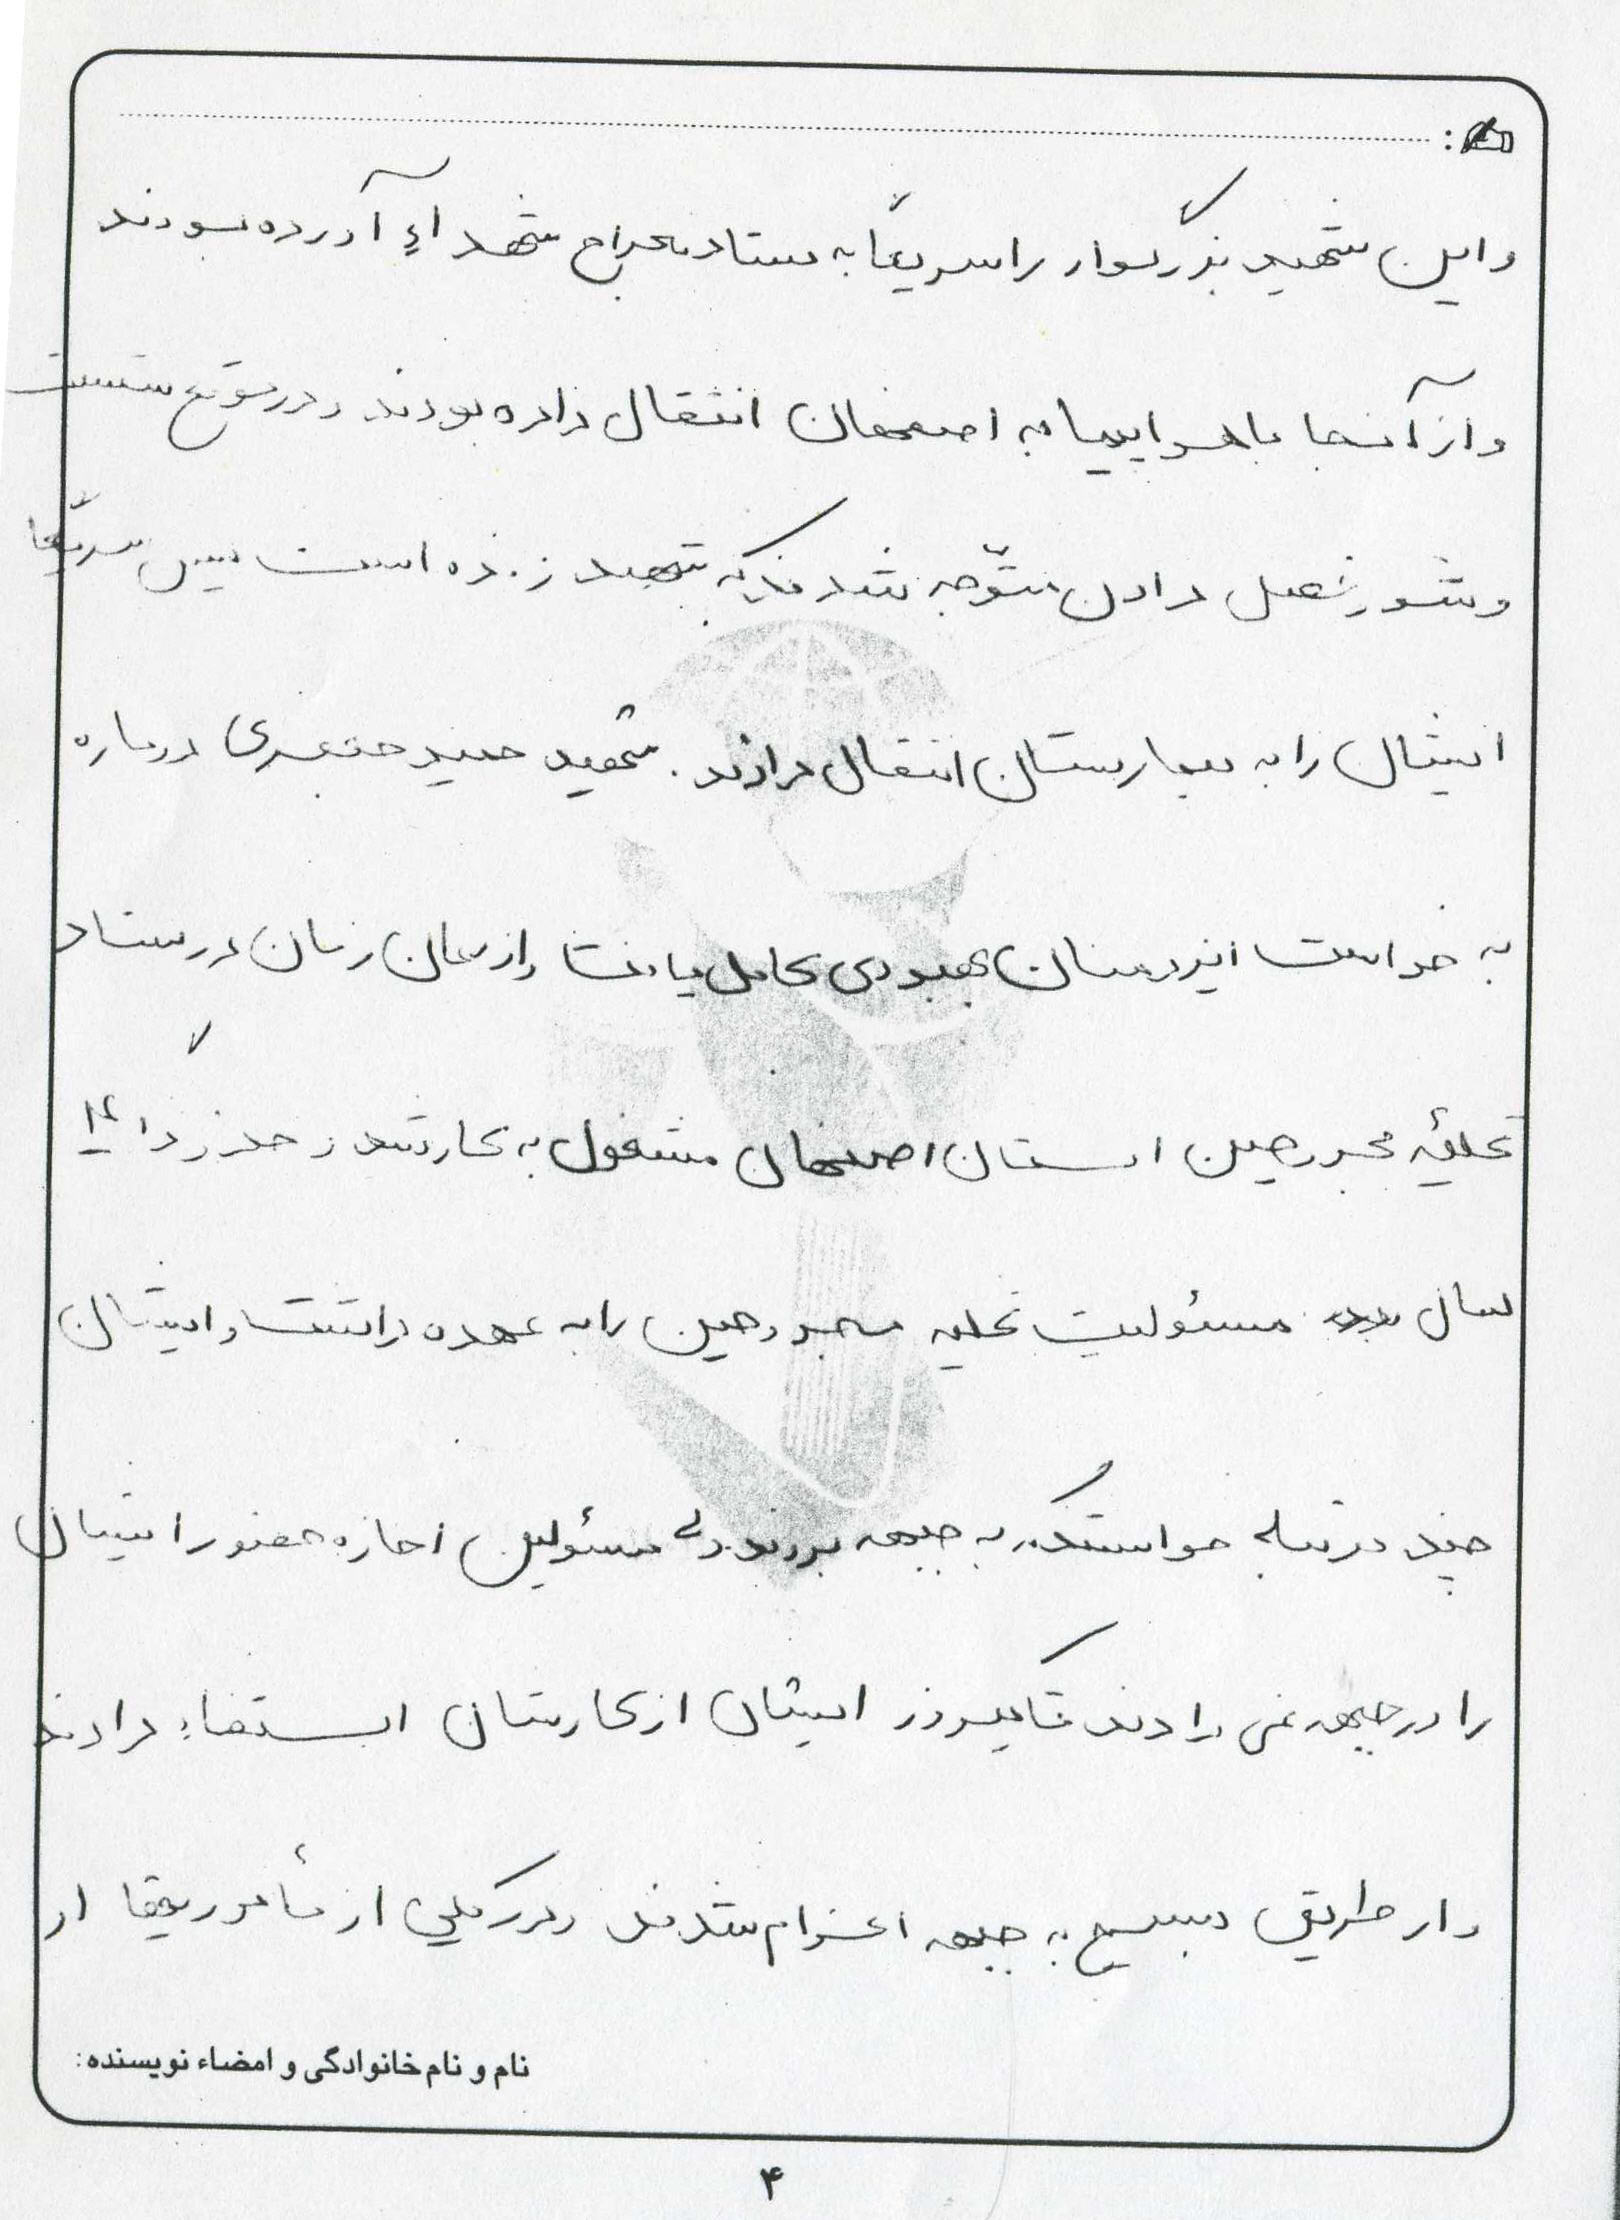 و این شهید بزرگوار را سریعاً به ستاد معراج شهداء آورده بودند
و از آنجا با هواپیما به اصفهان انتقال داده بودند و در موقع شست
و شو و غسل دادن متوجّه شدند که شهید زنده است پس سریعاً
ایشان را به بیمارستان انتقال دادند. شهید حمید جعفری دوباره
به خواست ایزد منان بهبودی کامل یافت و از همان زمان در ستاد
تخلیّه مجروحین استان اصفهان مشغول به کار شد و حدوداً ۴
سال مسئولیت تخلیه مجروحین را به عهده داشت و ایشان
چند مرتبه خواستند که به جبهه بروند ولی مسئولین اجازه حضور ایشان
را در جبهه نمی دادند تا یکروز ایشان از کارشان استعفاء دادند
و از طریق بسیج به جبهه اعزام شدند و در یکی از مأموریتها از
نام و نام خانوادگی و امضاء نویسنده:
۴